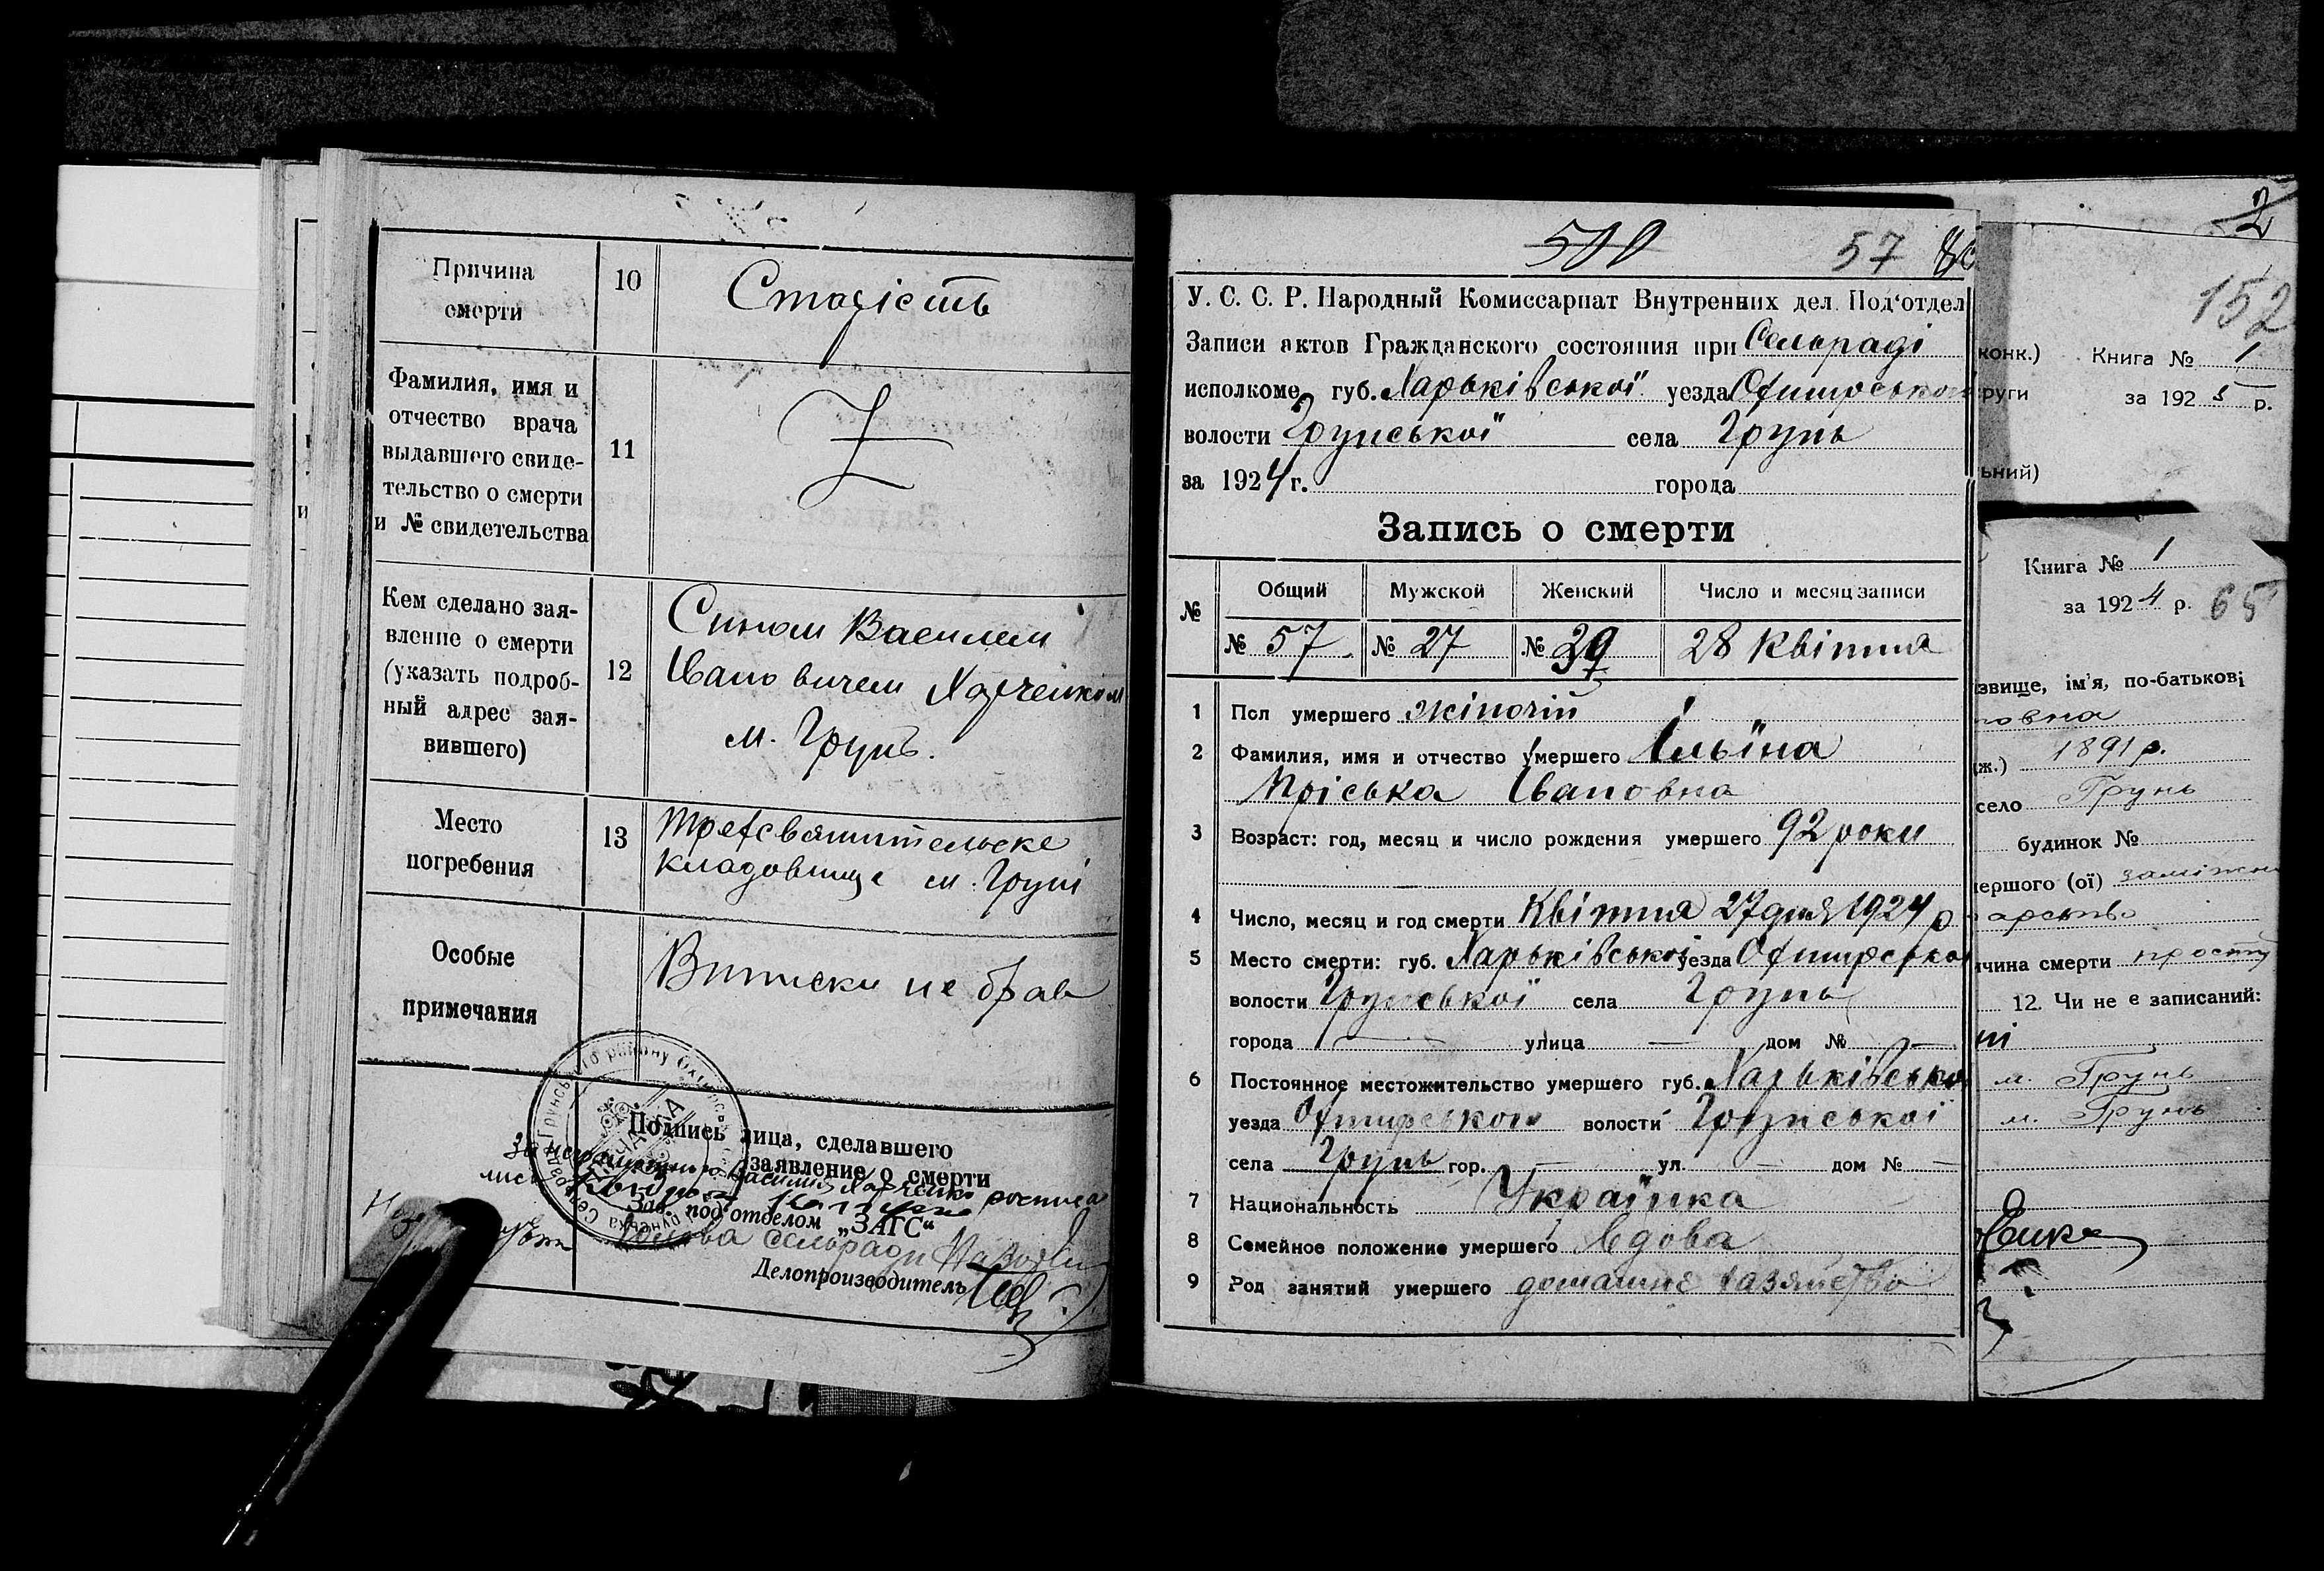 Причина
смерти
10
Старість
Фамилия, имя и
отчество врача
выдавшего свиде-
тельство о смерти
и № свидетельства
11
Кем сделано зая-
вление о смерти
(указать подроб-
ный адрес зая-
вившего)
12
Сином Василем
Івановичем Харченком
м. Грунь.
Место
погребения
13
Трехсвятительске
кладовище м. Груні
Особые
примечания
Виписки не брав
Подпись лица, сделавшего
заявление о смерти
за неграмотного Василия Харченко росписа
Зав. под'отделом „ЗАГС“
Голова сельради
Делопроизводитель
57
У. С. С. Р. Народный Комиссариат Внутренних дел. Под'отдел
Записи актов Гражданского состояния при Сельраді
исполкоме губ. Харьківської уезда Охтирської
волости Грунської села Грунь
за 1924 г. города
Запись о смерти
№ Общий Мужской Женский Число и месяц записи
№ 57 № 27 № 30 28 Квітня
1 Пол умершего жіночій
2 Фамилия, имя и отчество умершего Ільїна
Пріська Івановна
3 Возраст: год, месяц и число рождения умершего 92 роки
4 Число, месяц и год смерти Квітня 27 дня 1924 р
5 Место смерти: губ. Харьківської уезда Охтирської
волости Грунської села Грунь
города — улица — дом № —
6 Постоянное местожительство умершего губ. Харьківської
уезда Охтирського волости Грунської
села Грунь гор. — ул. — дом № —
7 Национальность Українка
8 Семейное положение умершего Вдова
9 Род занятий умершего домашнє хазяйство
2
152
конк.) Книга № 1
руги за 1925 р.
ьний)
Книга № 1
за 1924 р. 65
звище, ім'я, по-батькові
овна
ж.) 1891 р.
село Грунь
будинок №
ершого (ої) заміжня
арство
чина смерти простуд
12. Чи не є записаний:
ні
м. Грунь
м. Грунь